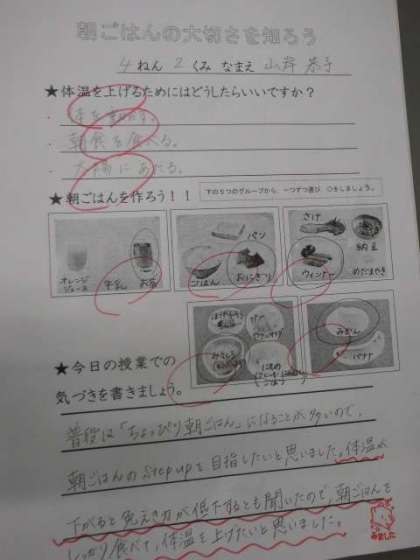 朝ごはんの大切さを知ろう
4 ねん 2 くみ なまえ 山岸 恭子
★体温を上げるためにはどうしたらいいですか?
・ 体を動かす。
・ 朝食を食べる。
・ 太陽にあたる。
★朝ごはんを作ろう!!
下の5つのグループから 一つずつ選び ○をしましょう。
オレンジジュース 牛乳 お茶
パン ごはん おにぎり
さけ 納豆 ウィンナー めだまやき
みそしる
みかん バナナ
★今日の授業での
気づきを書きましょう。
普段は「ちょっぴり朝ごはん」になることが多いので、
朝ごはんのStep upを目指したいと思いました。体温が
下がると免えき力が低下するとも聞いたので、朝ごはんを
しっかり食べて、体温を上げたいと思いました。
みました